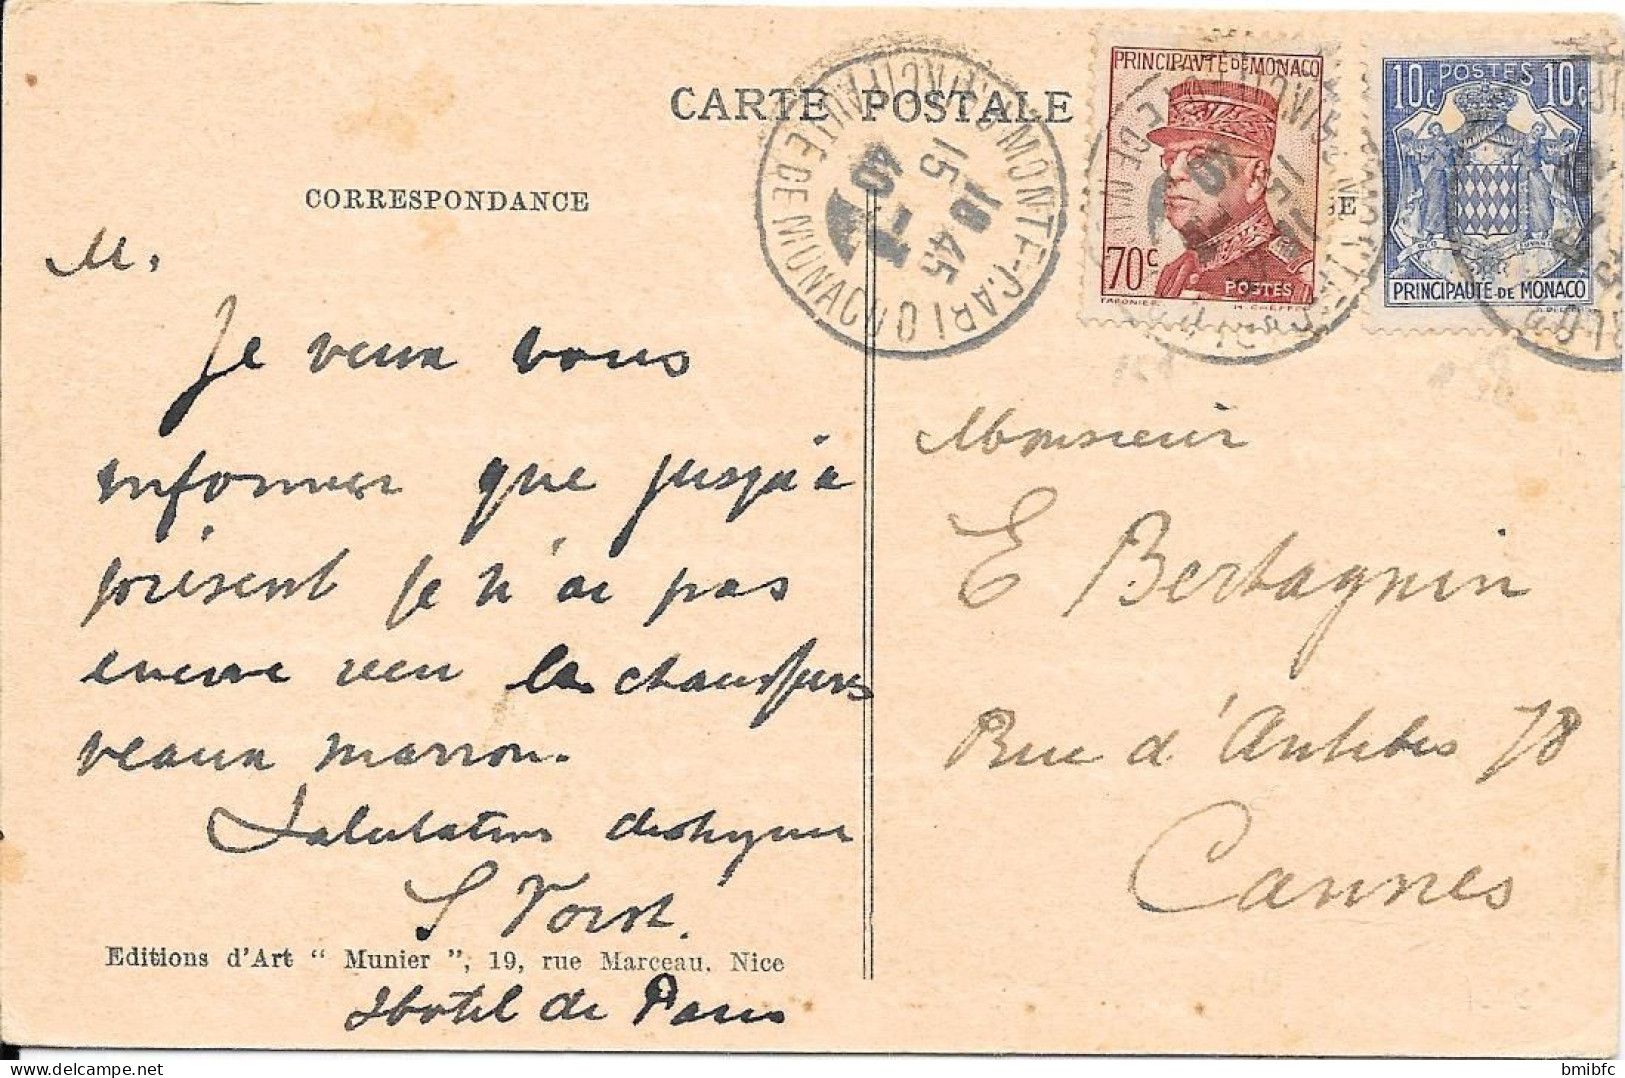 CARTE POSTALE
CORRESPONDANCE
M.
Je veux vous
informer que jusqu'à
présent je n'ai pas
encore reçu les chaussures
veaux marron.
Salutations distinguées
Editions d'Art “ Munier ”, 19, rue Marceau. Nice
Hotel de Paris
PRINCIPAUTE DE MONACO
70c
POSTES
10c POSTES 10c
PRINCIPAUTE DE MONACO
MONTE-CARLO
PRINCIPAUTE DE MONACO
15 45
40
Monsieur
E Bertagnin
Rue d'Antibes 78
Cannes
bmibfc